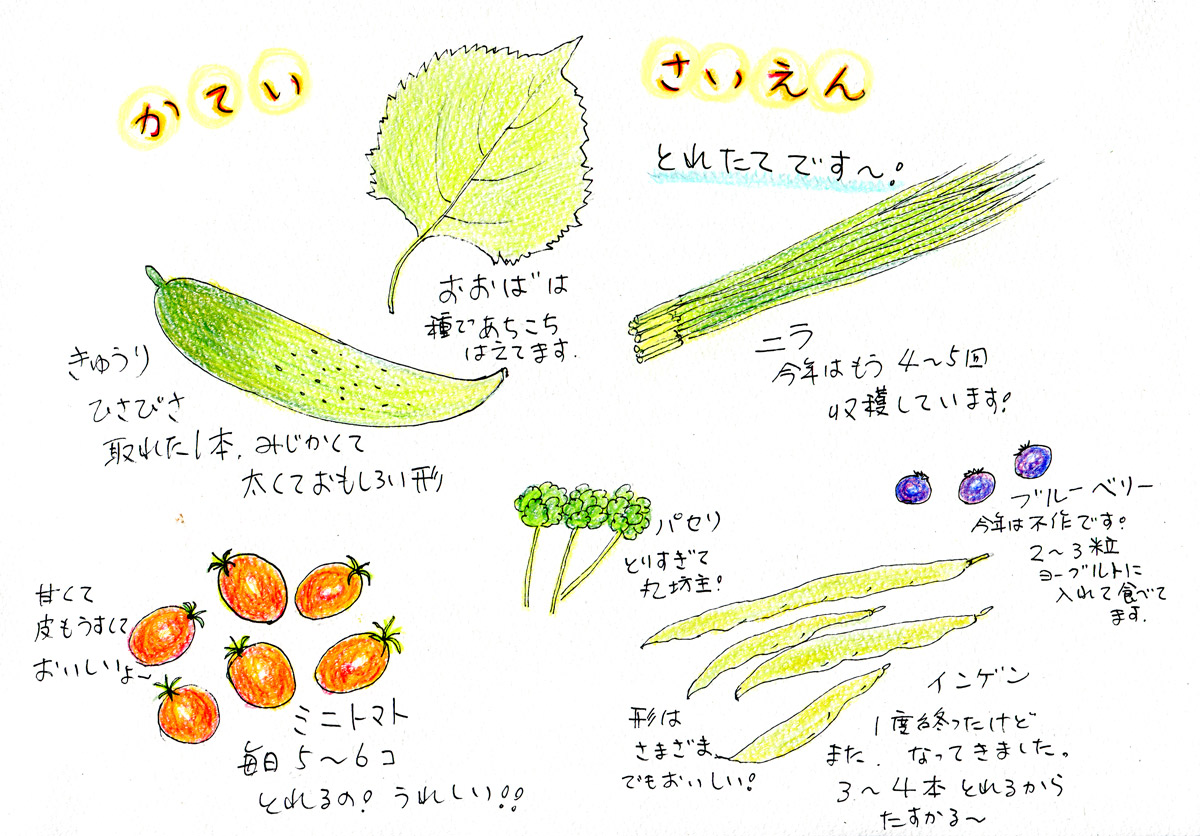 かてい
さいえん
とれたてです〜!
おおばは
種であちこち
はえてます.
ニラ
今年はもう 4〜5回
収穫しています!
きゅうり
ひさびさ
取れた1本.みじかくて
太くておもしろい形
ブルーベリー
今年は不作です!
2〜3粒
ヨーグルトに
入れて食べて
ます.
パセリ
とりすぎて
丸坊主!
甘くて
皮もうすくて
おいしいよ〜
ミニトマト
毎日 5〜6コ
とれるの! うれしい!!
形は
さまざま
でもおいしい!
インゲン
1度終ったけど
また.なってきました。
3〜4本 とれるから
たすかる〜